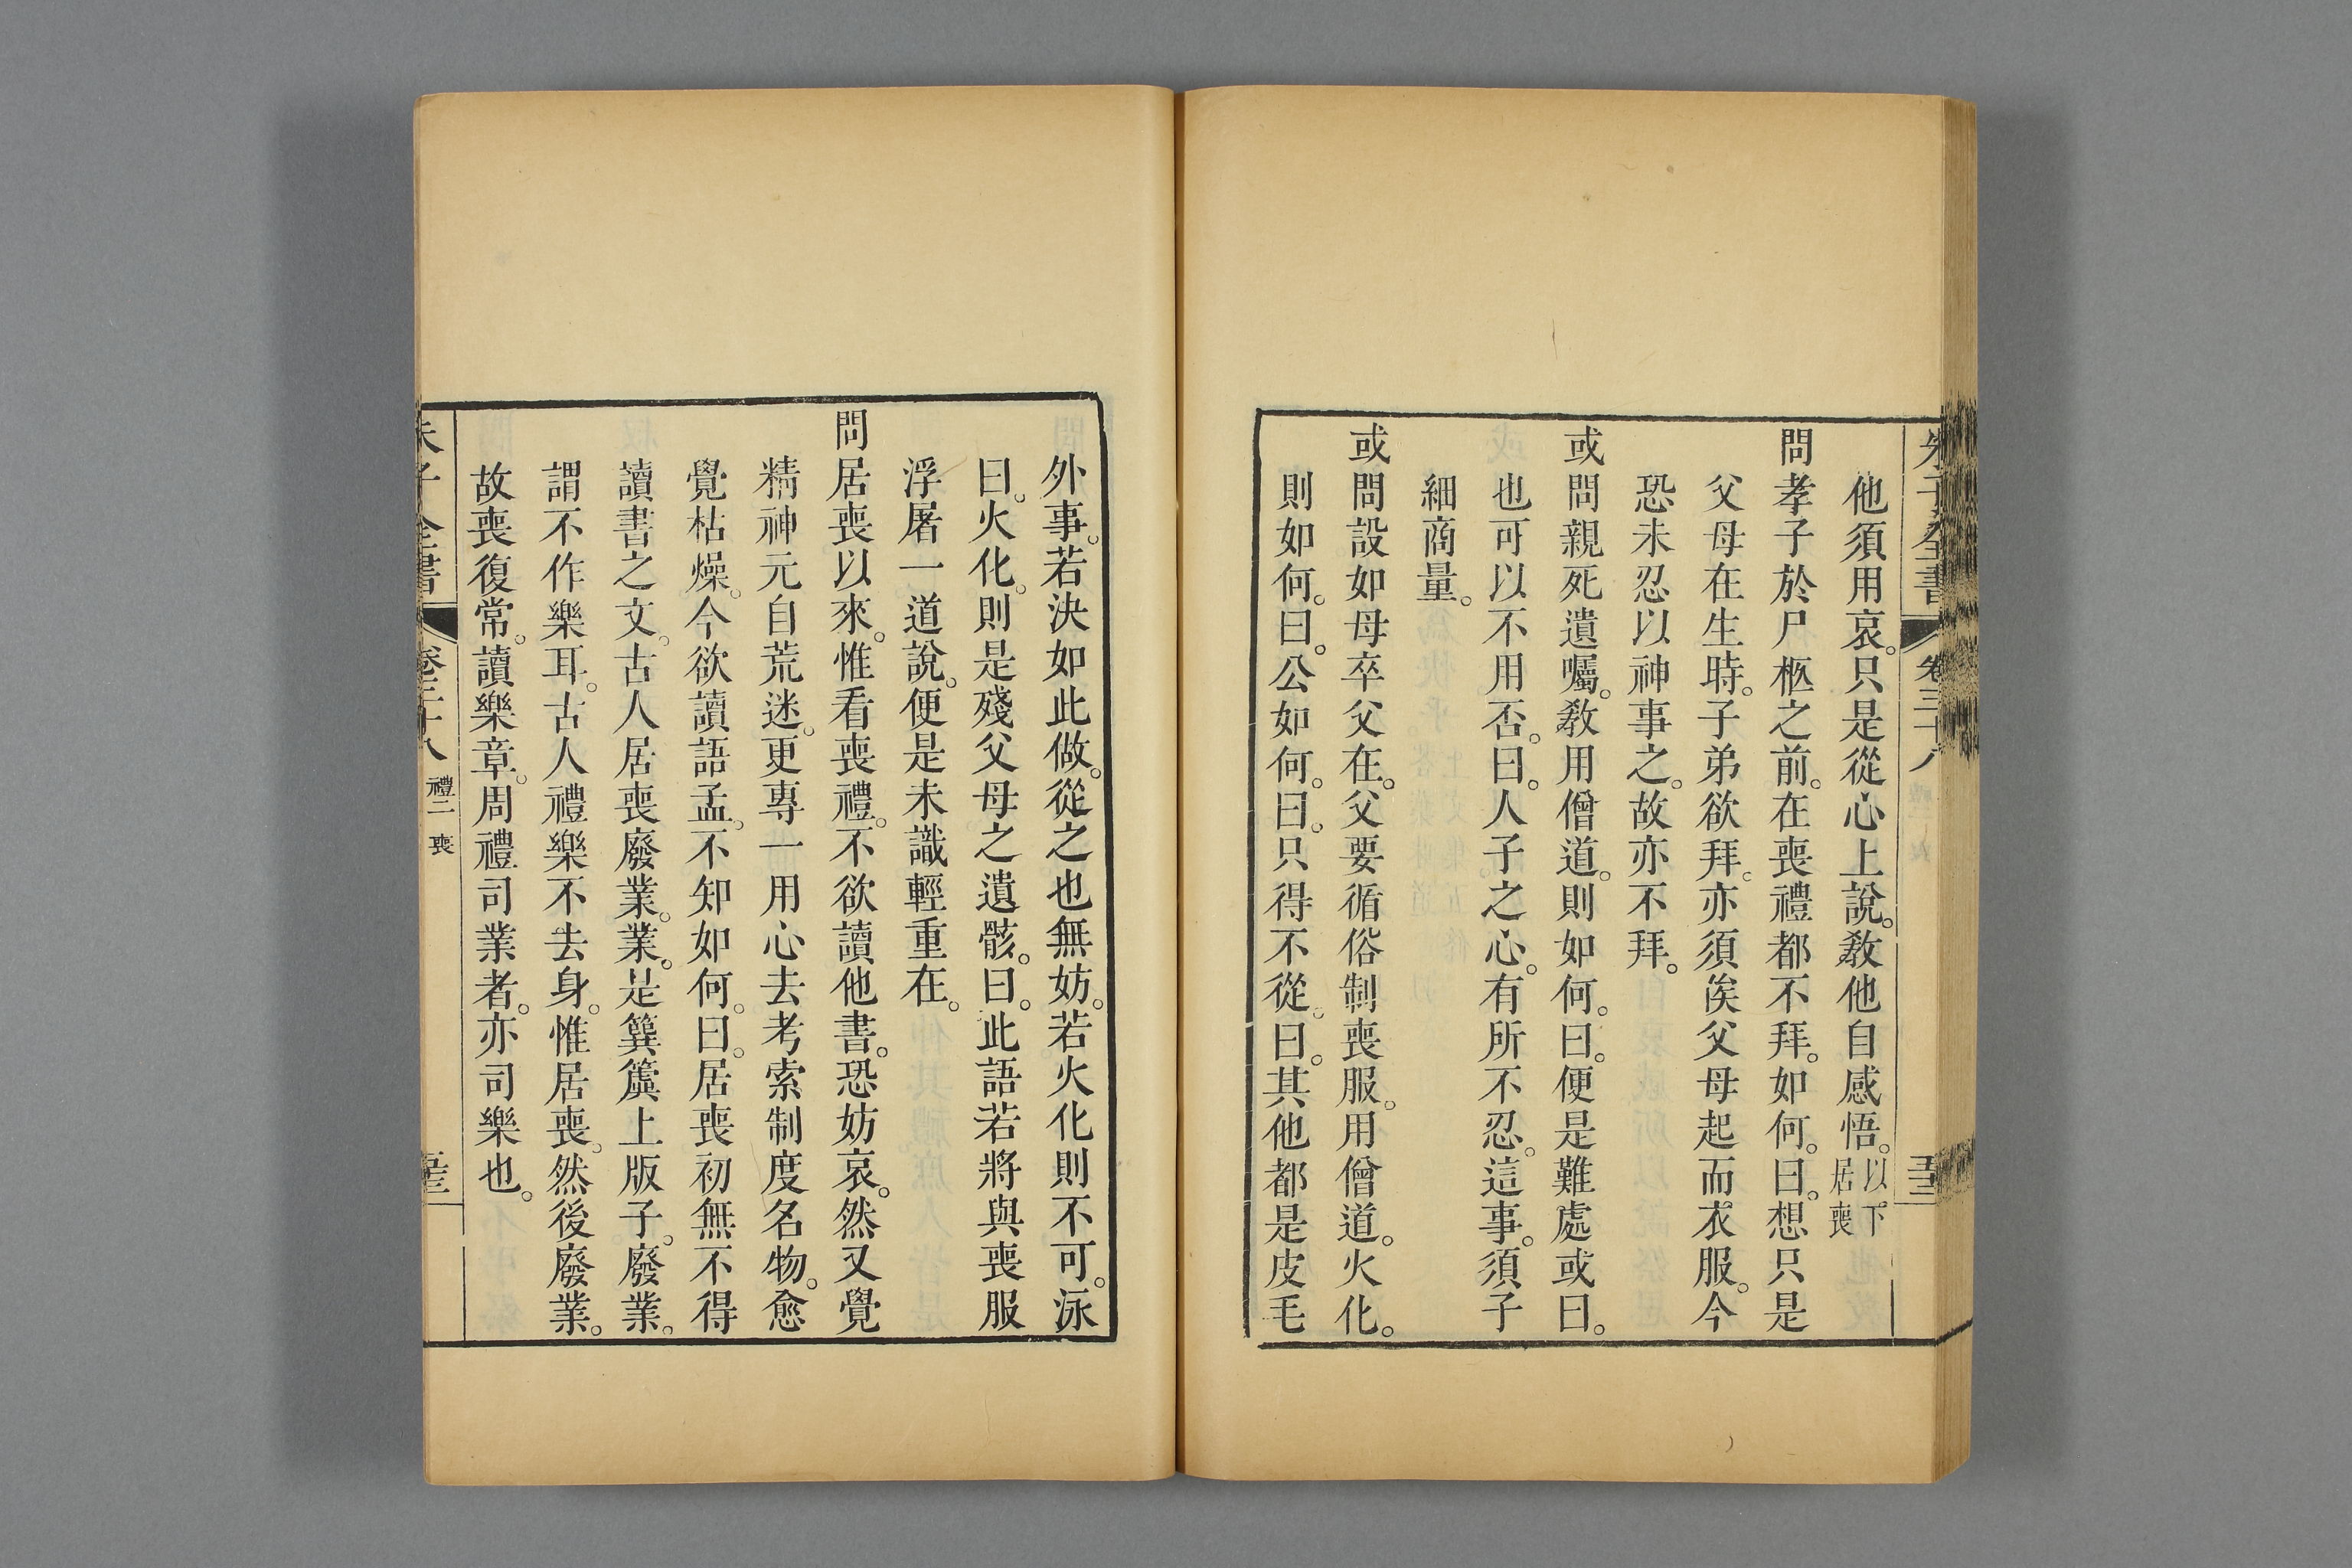 朱子全書 卷三十八
他須用哀。只是從心上說。教他自感悟。以下居喪
問孝子於尸柩之前。在喪禮都不拜。如何。曰。想只是
父母在生時。子弟欲拜。亦須俟父母起而衣服。今
恐未忍以神事之。故亦不拜。
或問親死遺囑。教用僧道。則如何。曰。便是難處或曰。
也可以不用否。曰。人子之心。有所不忍。這事。須子
細商量。
或問設如母卒父在。父要循俗制喪服。用僧道。火化。
則如何。曰。公如何。曰。只得不從。曰。其他都是皮毛
外事。若決如此做。從之也無妨。若火化則不可。泳
曰。火化。則是殘父母之遺骸。曰。此語若將與喪服
浮屠一道說。便是未識輕重在。
問居喪以來。惟看喪禮。不欲讀他書。恐妨哀。然又覺
精神元自荒迷。更專一用心去考索制度名物。愈
覺枯燥。今欲讀語孟。不知如何。曰。居喪初無不得
讀書之文。古人居喪廢業。業。是簨簴上版子。廢業。
謂不作樂耳。古人禮樂不去身。惟居喪。然後廢業。
故喪復常。讀樂章。周禮司業者。亦司樂也。
朱子全書 卷三十八 禮二 喪